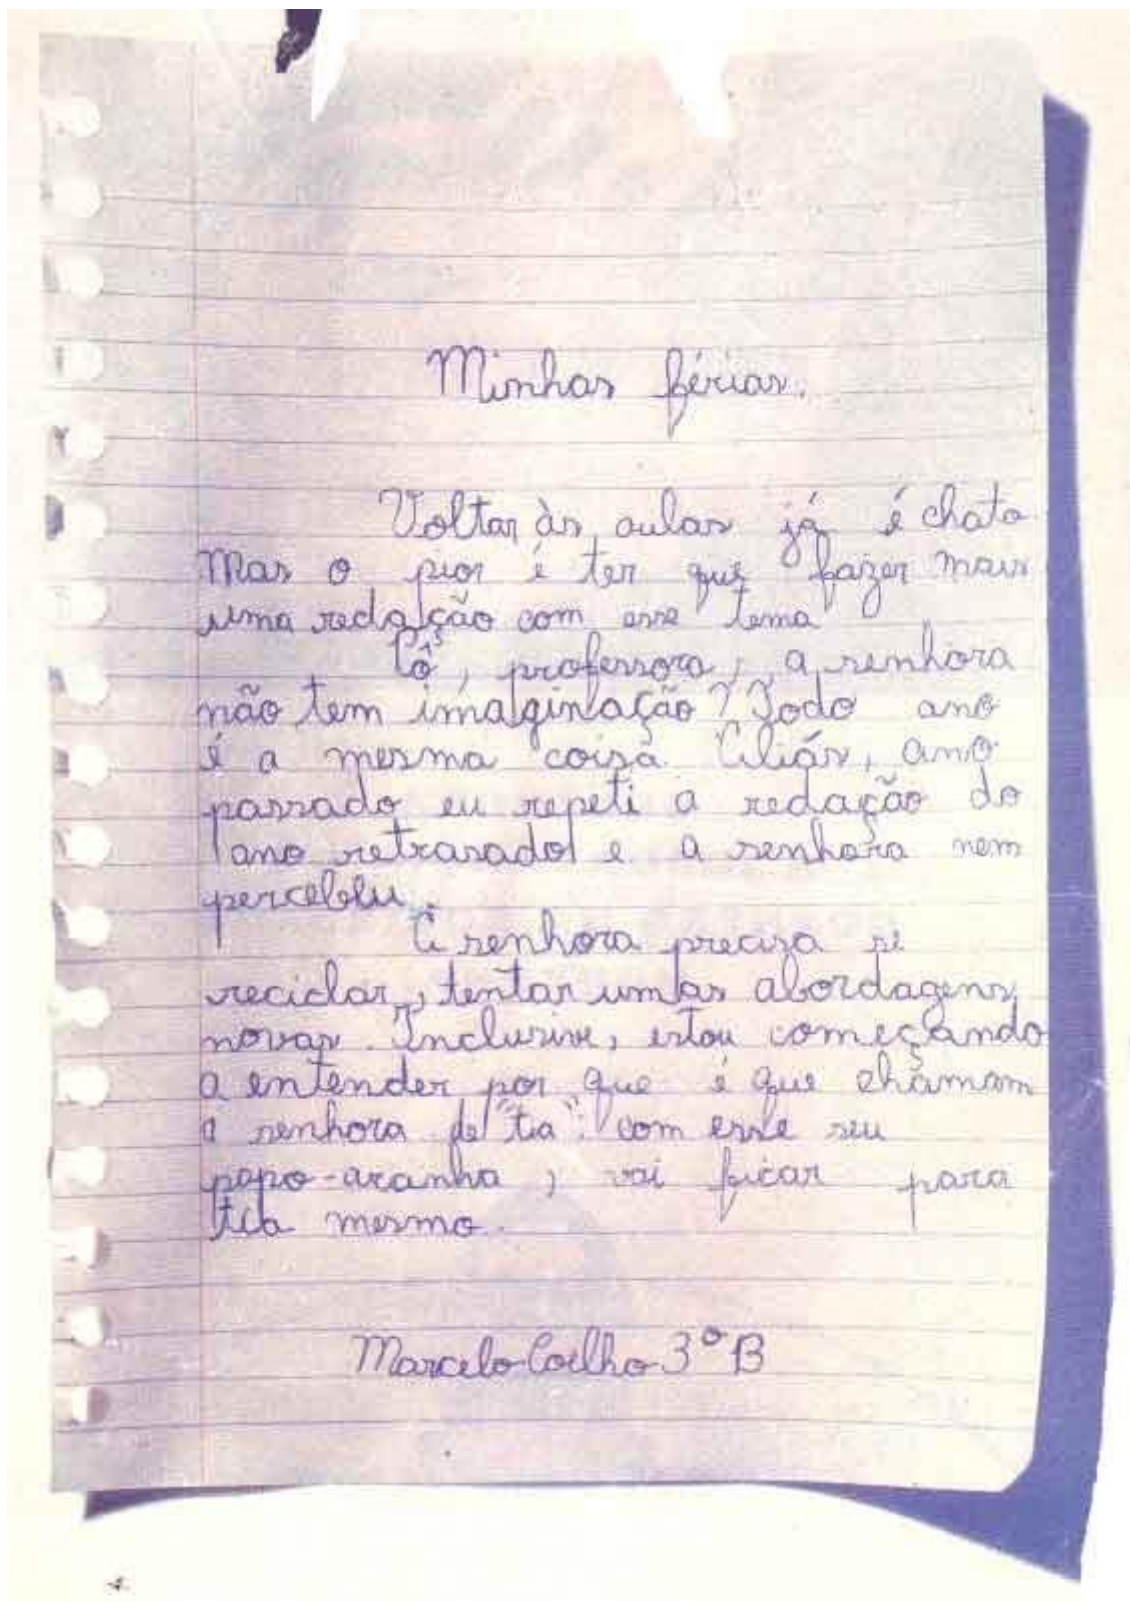 Minhas férias.
Voltar às aulas já é chato
Mas o pior é ter que fazer mais
uma redação com esse tema
Pô, professora, a senhora
não tem imaginação? Todo ano
é a mesma coisa. Aliás, ano
passado eu repeti a redação do
ano retrasado e a senhora nem
percebeu.
A senhora precisa se
reciclar, tentar umas abordagens
novas. Inclusive, estou começando
a entender por que é que chamam
a senhora de "tia". com esse seu
papo-aranha, vai ficar para
tia mesmo.
Marcelo Coelho 3º B